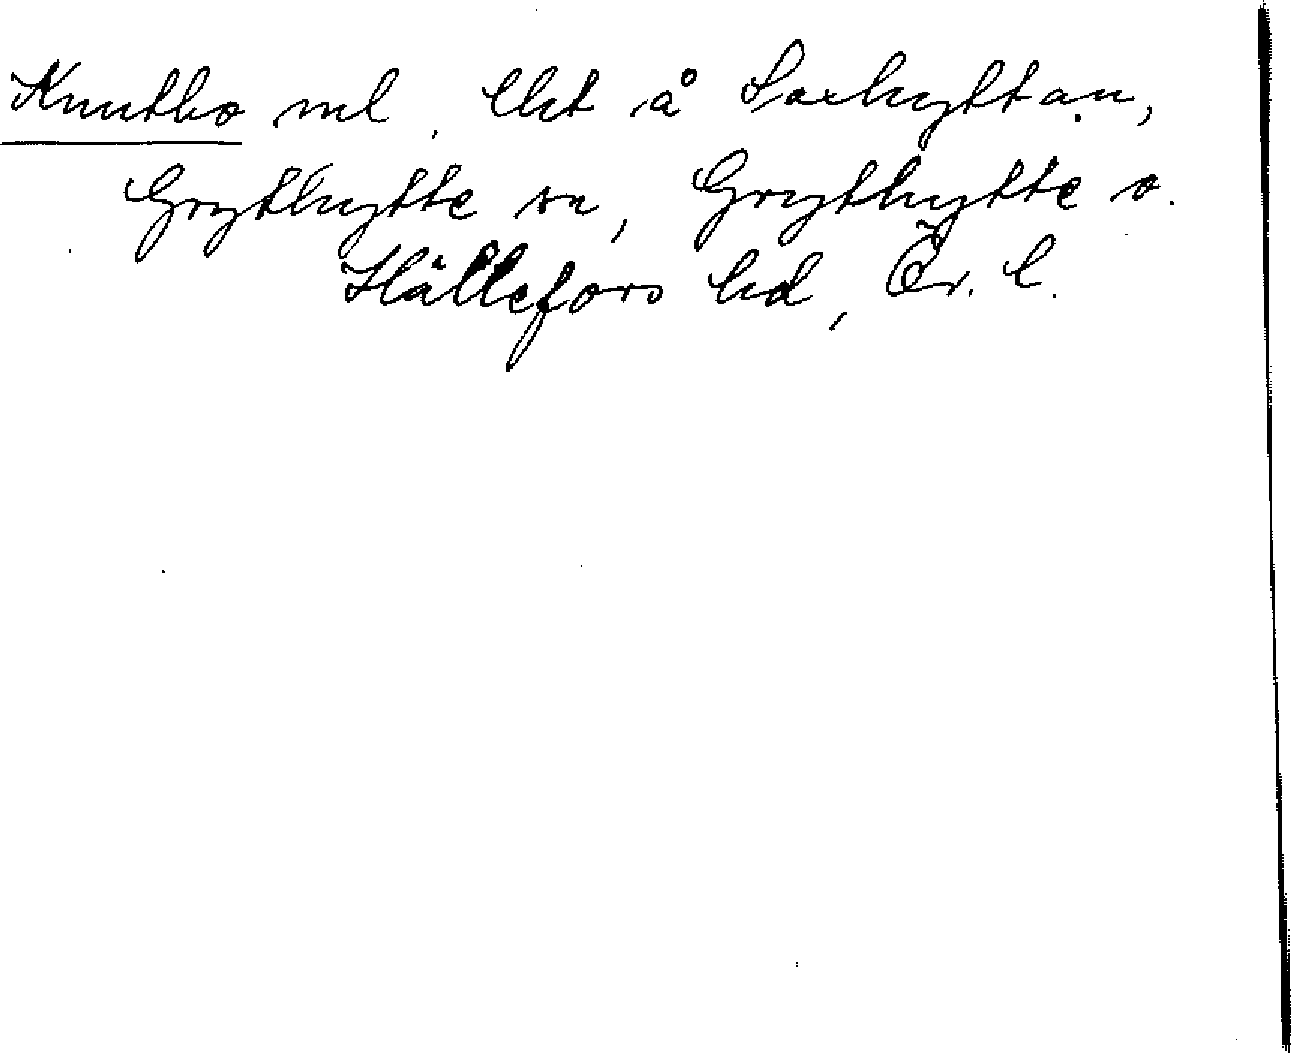 Knutbo nl, lht å Saxhyttan,
Grythytte sn, Grythytte o.
Hällefors hd, Ör. l.